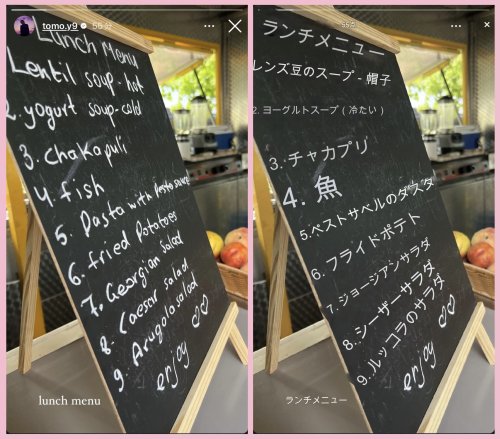 tomo.y9 55分
Lunch Menu
Lentil soup-hot
2. yogurt soup-cold
3. chakapuli
4. fish
5. Pasta with Pesto sauce
6. fried Potatoes
7. Georgian salad
8. Caesar salad
9. Arugola salad
enjoy
lunch menu
55分
ランチメニュー
レンズ豆のスープ - 帽子
2. ヨーグルトスープ ( 冷たい )
3. チャカプリ
4. 魚
5.ペストサペルのダスタ
6. フライドポテト
7. ジョージアンサラダ
8..シーザーサラダ
9..ルッコラのサラダ
enjoy
ランチメニュー